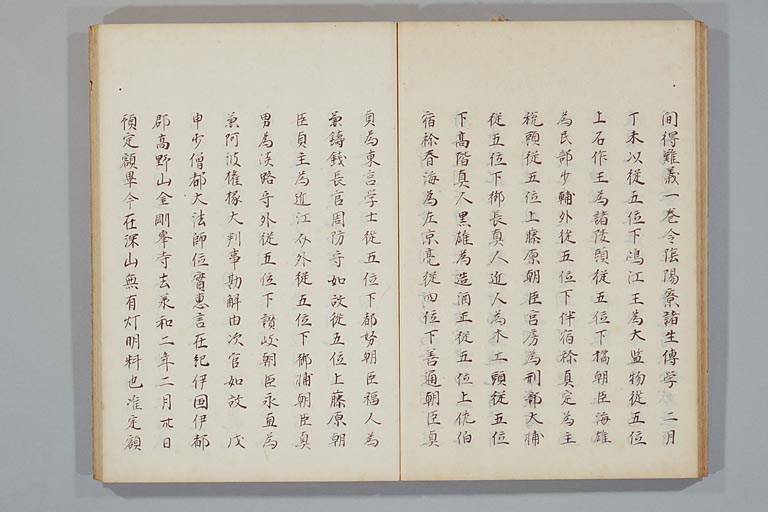 間得難義一巻令陰陽寮諸生傳学 二月
丁未以従五位下嶋江王為大監物従五位
上石作王為諸陵頭従五位下橘朝臣海雄
為民部少輔外従五位下伴宿祢真定為主
税頭従五位上藤原朝臣宮房為刑部大輔
従五位下御長真人近人為木工頭従五位
下高階真人黒雄為造酒正従五位上佐伯
宿祢春海為左京亮従四位下善道朝臣真
貞為東宮学士従五位下都努朝臣福人為
兼鋳銭長官周防守如故従五位上藤原朝
臣貞主為近江介外従五位下御輔朝臣真
男為淡路守外従五位下讃岐朝臣永直為
兼阿波権掾大判事勘解由次官如故 戊
申少僧都大法師位實惠言在紀伊国伊都
郡高野山金剛峯寺去承和二年二月卅日
預定額畢今在深山無有灯明料也准定額